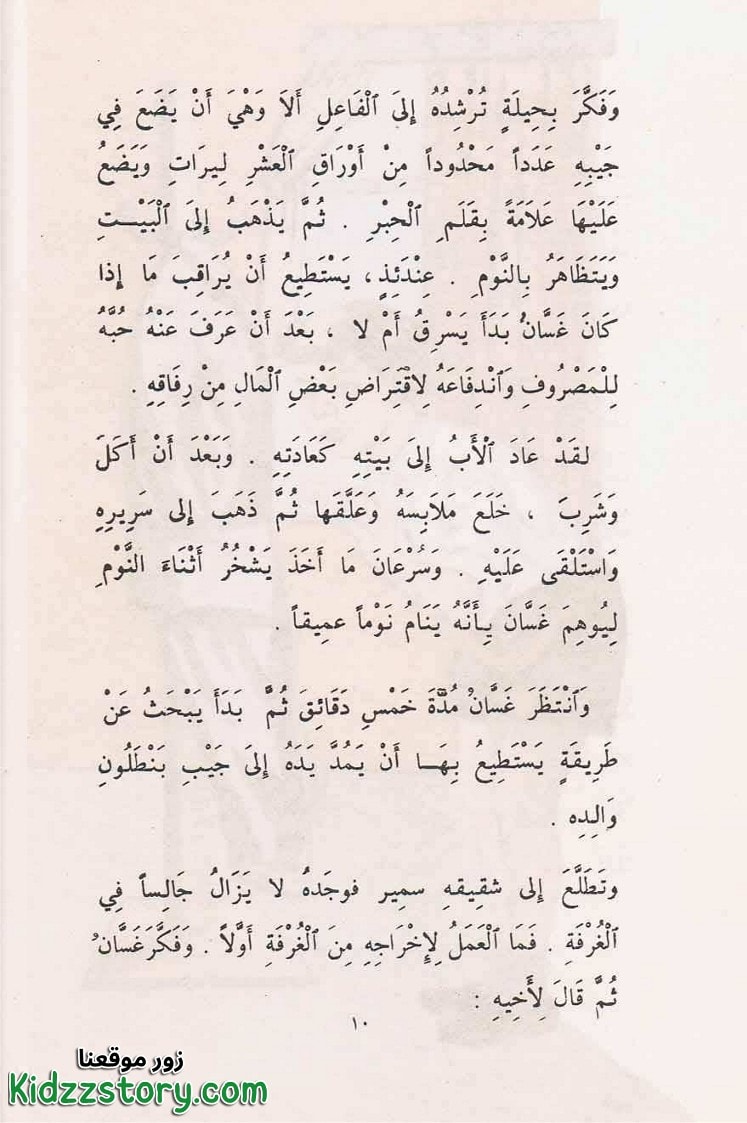 وَفَكَّرَ بِحِيلَةٍ تُرْشِدُهُ إِلىَ ٱلْفَاعِلِ أَلاَ وَهْيَ أَنْ يَضَعَ فِي
جَيْبِهِ عَدَداً مَحْدُوداً مِنْ أَوْرَاقِ ٱلْعَشْرِ لِيرَاتِ وَيَضَعُ
عَلَيْهَا عَلاَمَةً بِقَلَمِ ٱلْحِبْرِ . ثُمَّ يَذْهَبُ إِلىَ ٱلْبَيْتِ
وَيَتَظَاهَرُ بِالنَّوْمِ . عِنْدَئِذٍ، يَسْتَطِيعُ أَنْ يُرَاقِبَ مَا إِذا
كَانَ غَسَّانُ بَدَأَ يَسْرِقُ أَمْ لا ، بَعْدَ أَنْ عَرَفَ عَنْهُ حُبَّهُ
لِلْمَصْرُوفِ وَٱنْدِفَاعَهُ لِاقْتِرَاضِ بَعْضِ ٱلْمَالِ مِنْ رِفَاقِهِ .
لقَدْ عَادَ ٱلْأَبُ إِلىَ بَيْتِهِ كَعَادَتِهِ . وَبَعْدَ أَنْ أَكَلَ
وَشَرِبَ ، خَلَعَ مَلاَبِسَهُ وَعَلَّقَها ثُمَّ ذَهَبَ إِلى سَرِيرِهِ
وَاسْتَلْقَى عَلَيْهِ . وَسُرْعَانَ مَا أَخَذَ يَشْخُرُ أَثْنَاءَ النَّوْمِ
لِيُوهِمَ غَسَّانَ بِأَنَّهُ يَنَامُ نَوْماً عمِيقاً .
وَٱنْتَظَرَ غَسَّانُ مُدَّةَ خَمْسِ دَقَائِقَ ثُمَّ بَدَأَ يَبْحَثُ عَنْ
طَرِيقَةٍ يَسْتَطِيعُ بِهَـا أَنْ يَمُدَّ يَدَهُ إِلىَ جَيْبِ بَنْطَلُونِ
وَالِدِه .
وتَطَلَّعَ إِلى شقِيقِهِ سمِير فوجَدهُ لا يَزَالُ جَالِساً فِي
ٱلْغُرْفَةِ . فَمَا ٱلْعَمَلُ لِإِخْرَاجِهِ مِنَ ٱلْغُرْفَةِ أَوَّلاً . وَفَكَّرَ غَسَّانُ
ثُمَّ قَالَ لِأَخِيهِ :
١٠
زور موقعنا
Kidzzstory.com